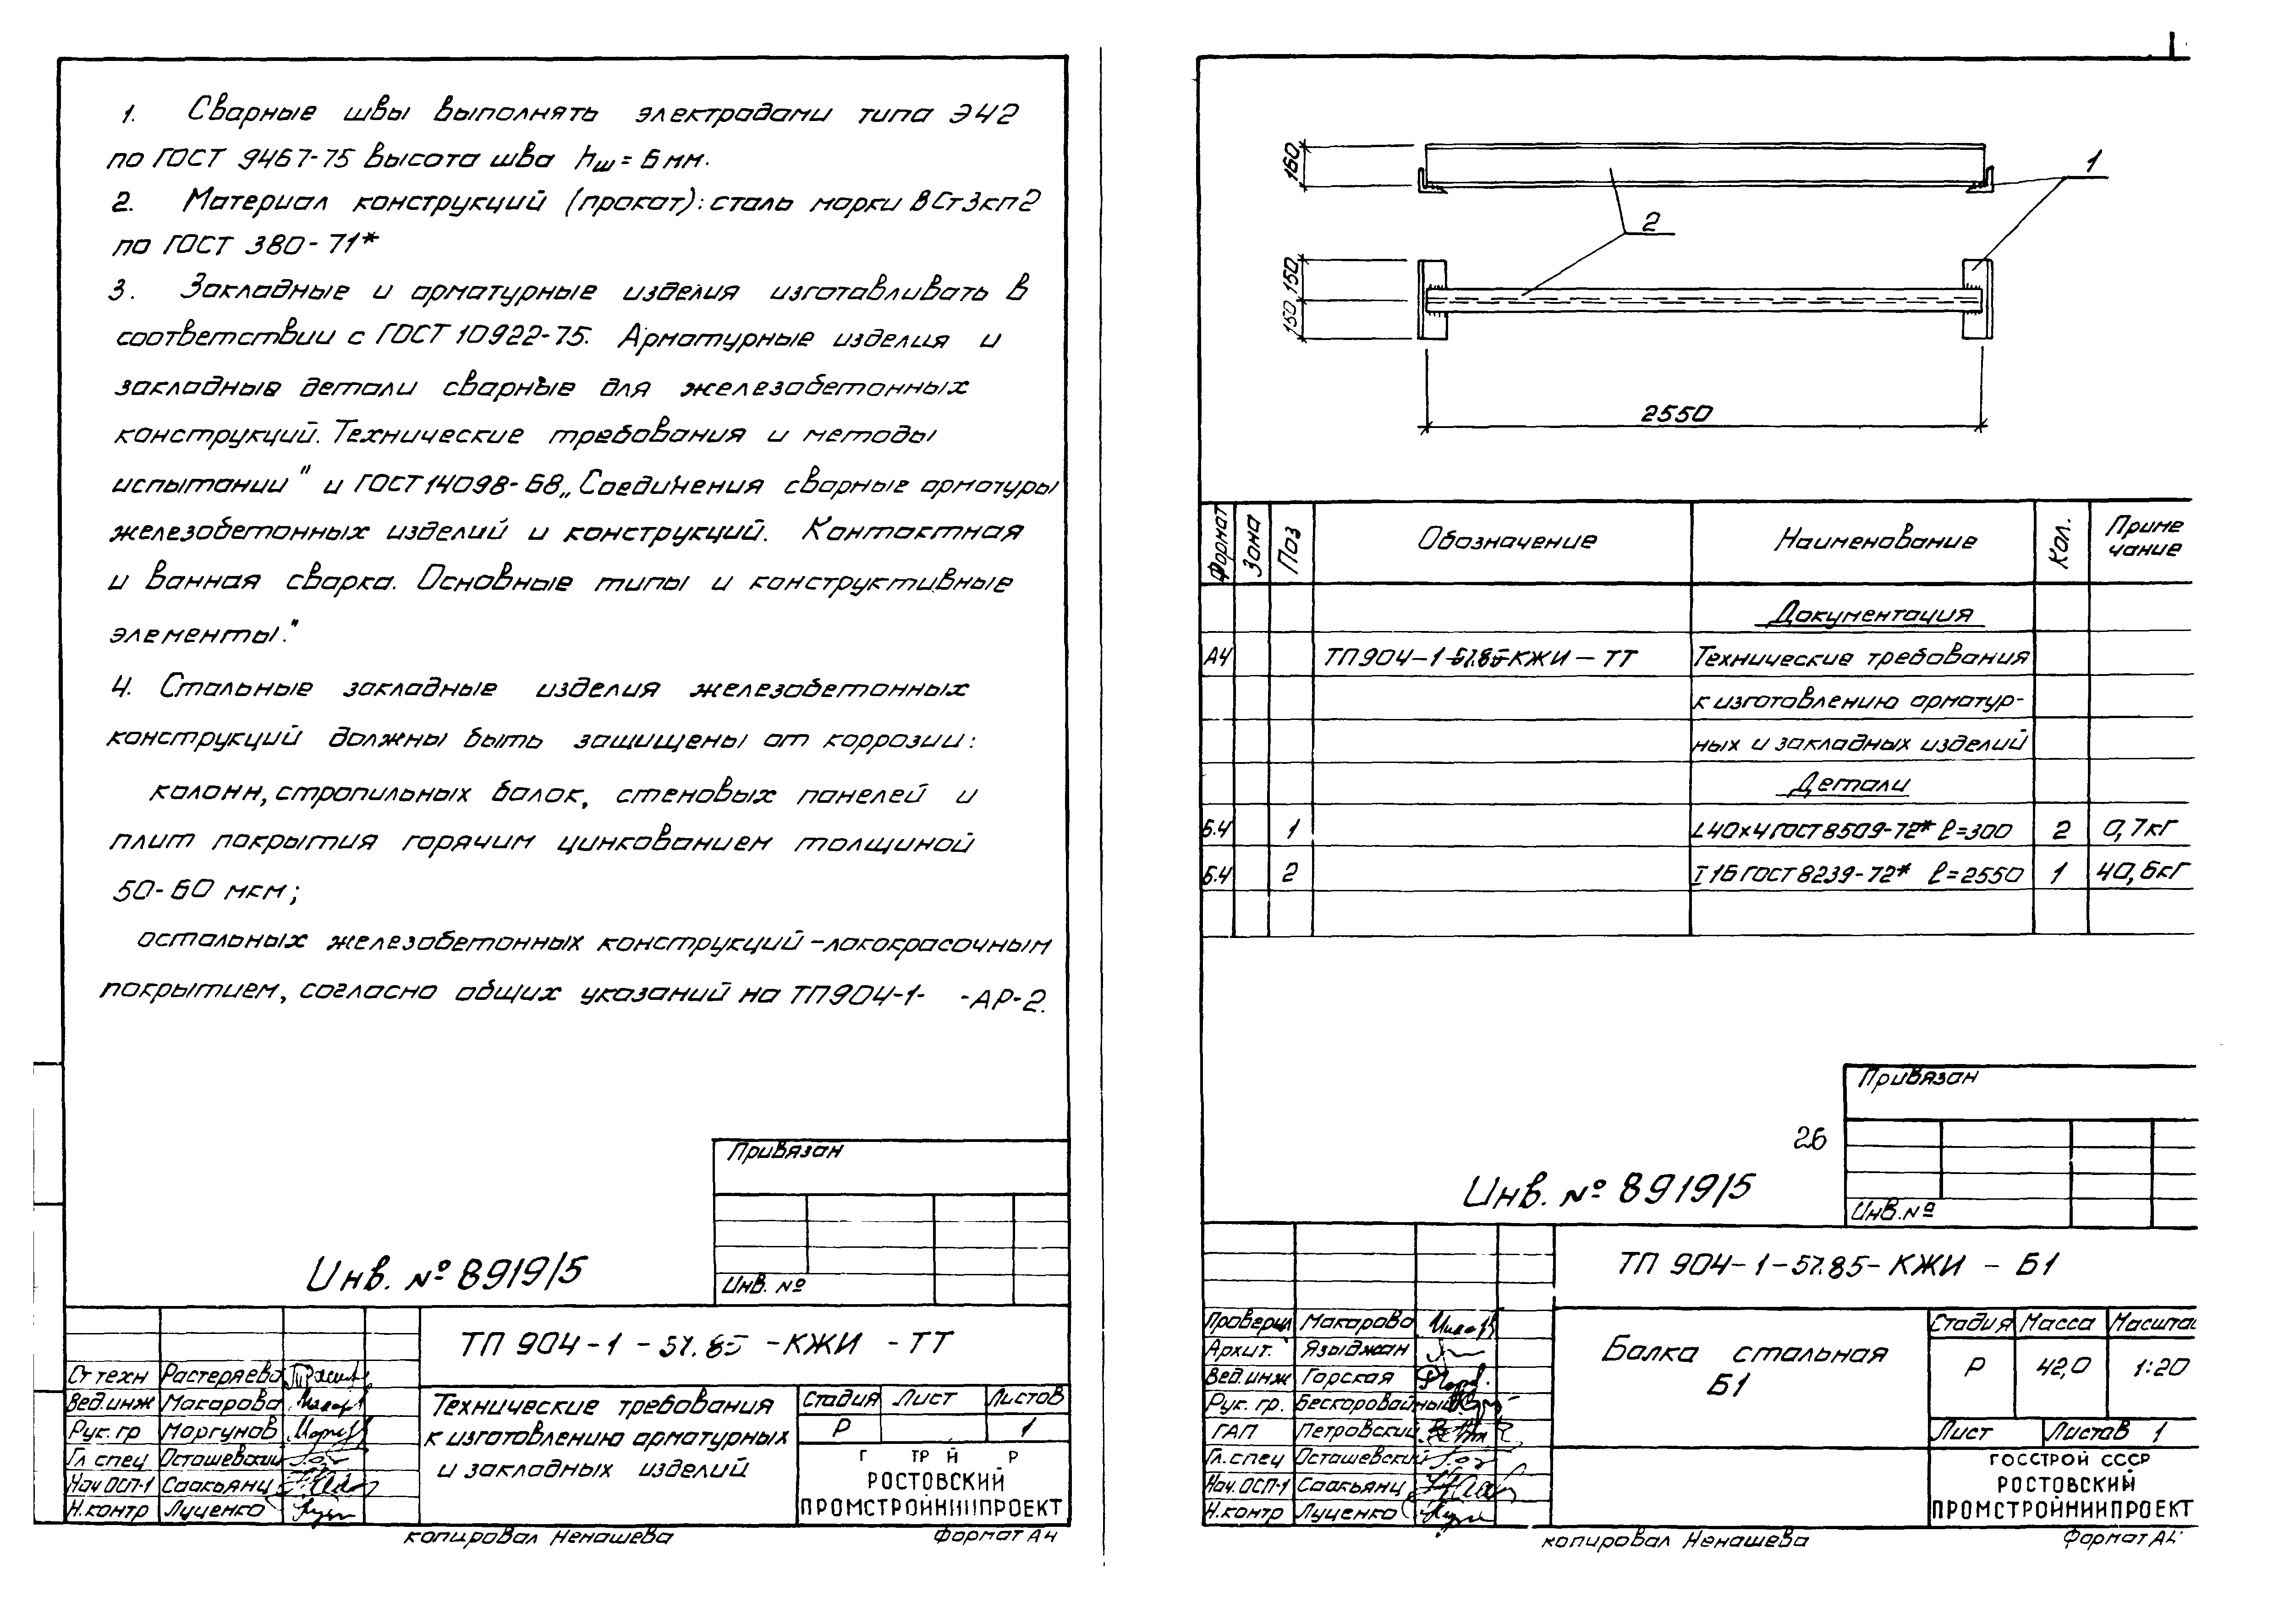 1. Сварные швы выполнять электродами типа Э42
по ГОСТ 9467-75 высота шва hш = 6 мм.
2. Материал конструкций (прокат): сталь марки ВСт3кп2
по ГОСТ 380-71*
3. Закладные и арматурные изделия изготавливать в
соответствии с ГОСТ 10922-75. Арматурные изделия и
закладные детали сварные для железобетонных
конструкций. Технические требования и методы
испытании" и ГОСТ 14098-68 „Соединения сварные арматуры
железобетонных изделий и конструкций. Контактная
и ванная сварка. Основные типы и конструктивные
элементы."
4. Стальные закладные изделия железобетонных
конструкций должны быть защищены от коррозии:
колонн, стропильных балок, стеновых панелей и
плит покрытия горячим цинкованием толщиной
50-60 мкм;
остальных железобетонных конструкций - лакокрасочным
покрытием, согласно общих указаний на ТП904-1- -АР-2.
Привязан
Инв. №
Инв. № 8919/5
ТП 904-1-57.85-КЖИ - ТТ
Ст техн Растеряева
Вед.инж Макарова
Рук. гр Моргунов
Гл спец Осташевский
Нач ОСП-1 Саакьянц
Н.контр Луценко
Технические требования
к изготовлению арматурных
и закладных изделий
Стадия Лист Листов
Р 1
Г ТР Й Р
РОСТОВСКИЙ
ПРОМСТРОЙНИИПРОЕКТ
копировал Ненашева Формат А4
160
1
2
150
150
2550
Формат Зона Поз Обозначение Наименование Кол. Приме
чание
Документация
А4 ТП904-1-57.85-КЖИ-ТТ Технические требования
к изготовлению арматур-
ных и закладных изделий
Детали
Б.4 1 L40x4 ГОСТ 8509-72* ℓ=300 2 0,7кг
Б.4 2 I 16 ГОСТ 8239-72* ℓ=2550 1 40,6кг
Привязан
26
Инв. №
Инв. № 8919/5
ТП 904-1-57.85-КЖИ - Б1
Проверил Макарова
Архит. Языджан
Вед.инж Горская
Рук. гр. Бескоровайный
ГАП Петровский
Гл. спец Осташевский
Нач. ОСП-1 Саакьянц
Н.контр Луценко
Балка стальная
Б1
Стадия Масса Масштаб
Р 42,0 1:20
Лист Листов 1
ГОССТРОЙ СССР
РОСТОВСКИЙ
ПРОМСТРОЙНИИПРОЕКТ
копировал Ненашева Формат А4